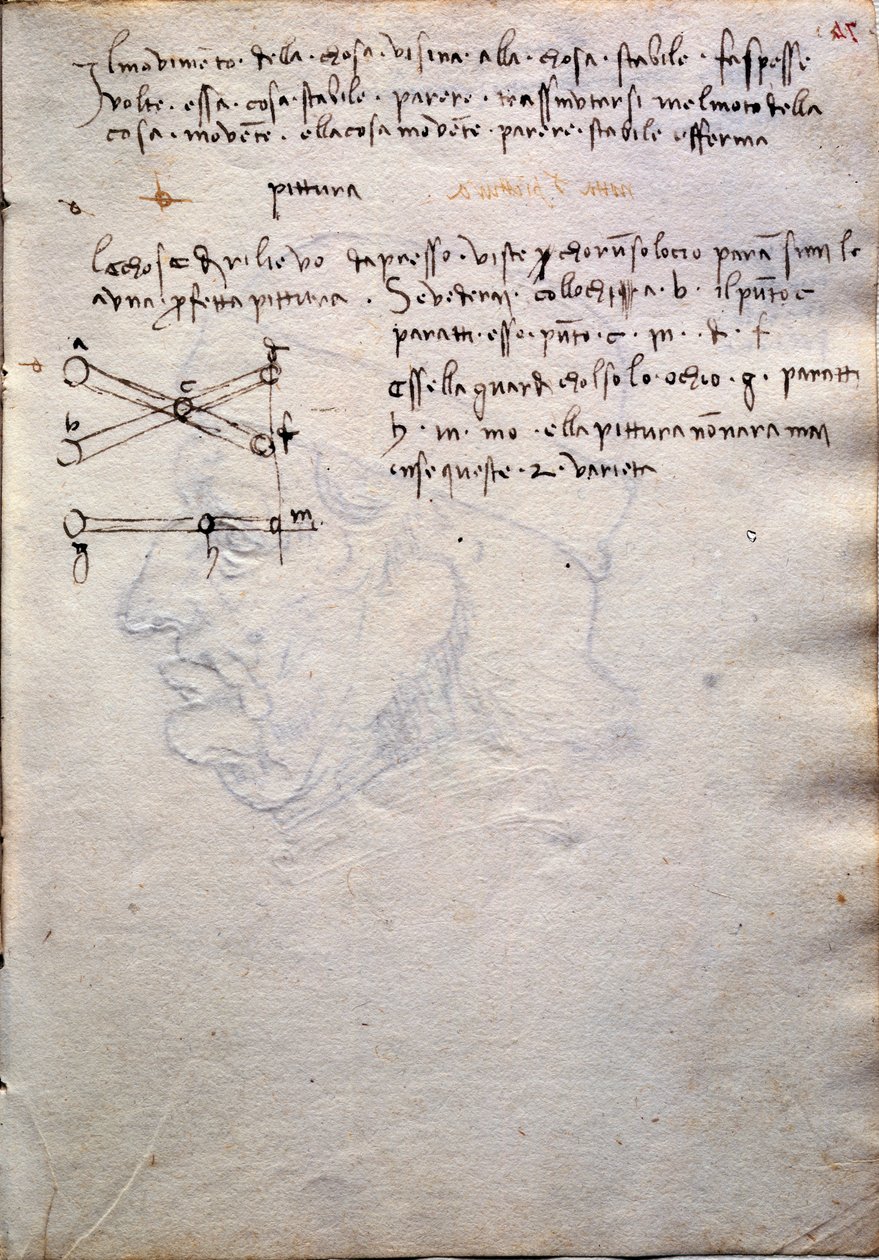 Il movimēto · della · chosa · visina · alla · chosa · stabile · fa spesse
volte · essa · cosa · stabile · parere · trassmutarsi · nel moto della
cosa · movēte · ella cosa movēte · parere · stabile · e fferma
pittura
le chose di rilievo da presso · viste chon un solo ocio parā simili
a una perfetta pittura · Se vederai · coll ochi a · b · il pūto c
paratti · esso · pūto · c · d · f
essella guardi chol solo · ochio · g · paratti
h · in · mo · ella pittura nō nara mai
in se queste · 2 · varieta
a
d
c
b
f
m
g
h